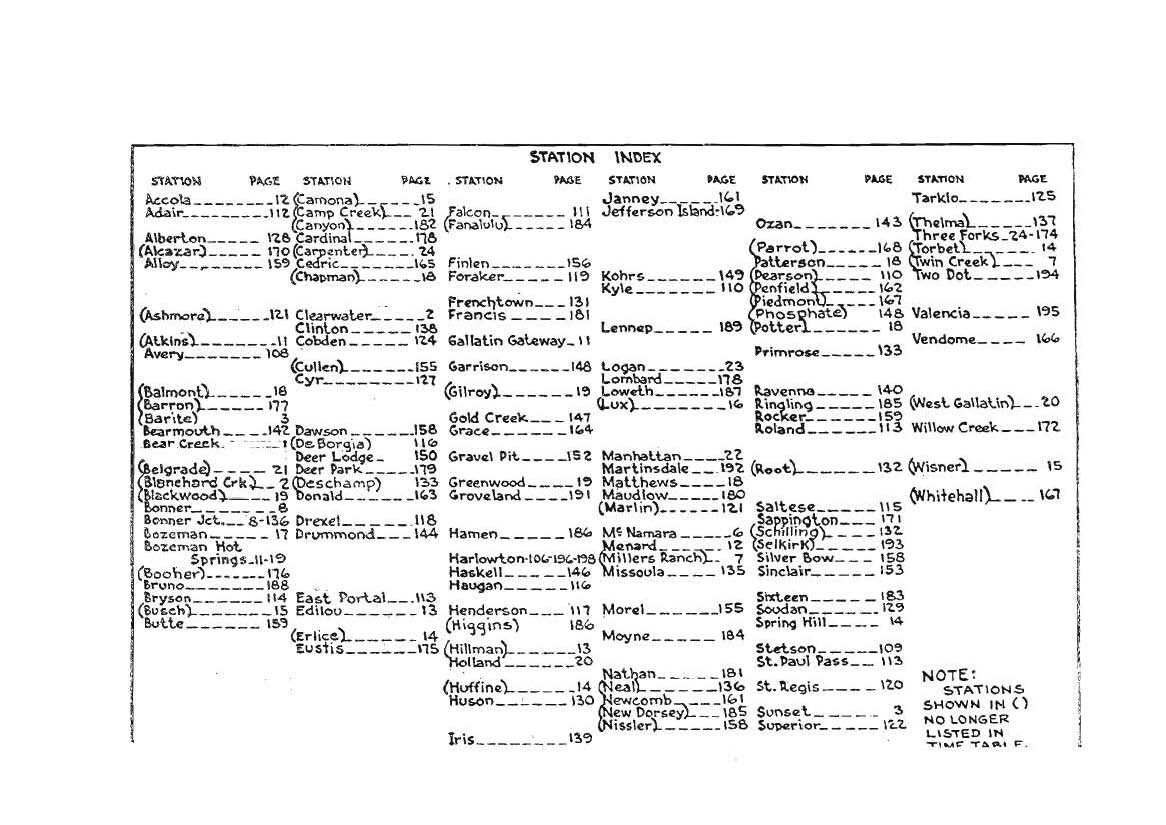 STATION INDEX
STATION PAGE
Accola 12
Adair 112
Alberton 128
(Alcazar) 170
Alloy 159
(Ashmore) 121
(Atkins) 11
Avery 108
(Balmont) 18
(Barron) 177
(Barite) 3
Bearmouth 142
Bear Creek 1
(Belgrade) 21
(Blanchard Crk) 2
(Blackwood) 19
Bonner 8
Bonner Jct. 8-136
Bozeman 17
Bozeman Hot
Springs 11-19
(Booher) 176
Bruno 188
Bryson 114
(Busch) 15
Butte 159
STATION PAGE
(Camona) 15
(Camp Creek) 21
(Canyon) 182
Cardinal 178
(Carpenter) 24
Cedric 165
(Chapman) 18
Clearwater 2
Clinton 138
Cobden 124
(Cullen) 155
Cyr 127
Dawson 158
(De Borgia) 116
Deer Lodge 150
Deer Park 179
(Deschamp) 133
Donald 163
Drexel 118
Drummond 144
East Portal 113
Edilou 13
(Erlice) 14
Eustis 175
STATION PAGE
Falcon 111
(Fanalulu) 184
Finlen 156
Foraker 119
Frenchtown 131
Francis 181
Gallatin Gateway 11
Garrison 148
(Gilroy) 19
Gold Creek 147
Grace 164
Gravel Pit 152
Greenwood 19
Groveland 191
Hamen 186
Harlowton-106-196-198
Haskell 146
Haugan 116
Henderson 117
(Higgins) 186
(Hillman) 13
Holland 20
(Huffine) 14
Huson 130
Iris 139
STATION PAGE
Janney 161
Jefferson Island-169
Kohrs 149
Kyle 110
Lennep 189
Logan 23
Lombard 178
Loweth 187
(Lux) 16
Manhattan 22
Martinsdale 192
Matthews 18
Maudlow 180
(Marlin) 121
McNamara 6
Menard 12
(Millers Ranch) 7
Missoula 135
Morel 155
Moyne 184
Nathan 181
(Neal) 136
Newcomb 161
(New Dorsey) 185
(Nissler) 158
STATION PAGE
Ozan 143
(Parrot) 168
Patterson 18
(Pearson) 110
(Penfield) 162
(Piedmont) 167
(Phosphate) 148
(Potter) 18
Primrose 133
Ravenna 140
Ringling 185
Rocker 159
Roland 113
(Root) 132
Saltese 115
Sappington 171
(Schilling) 132
(Selkirk) 193
Silver Bow 158
Sinclair 153
Sixteen 183
Soudan 129
Spring Hill 14
Stetson 109
St. Paul Pass 113
St. Regis 120
Sunset 3
Superior 122
STATION PAGE
Tarkio 125
(Thelma) 137
Three Forks 24-174
(Torbet) 14
(Twin Creek) 7
Two Dot 194
Valencia 195
Vendome 166
(West Gallatin) 20
Willow Creek 172
(Wisner) 15
(Whitehall) 167
NOTE:
STATIONS
SHOWN IN ()
NO LONGER
LISTED IN
TIME TABLE.